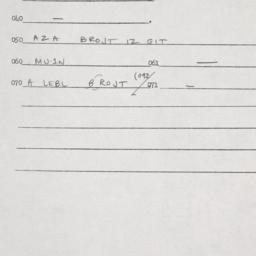 040 —
050 AZA BROJT IZ GIT
060 MUSN 061 —
070 A LEBL BROJT (092/ 071 —